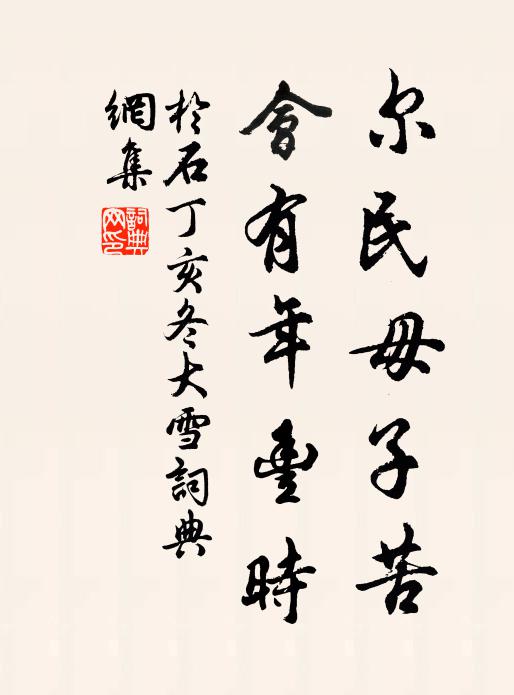 尔民毋子苦
會有年豐時
於石丁亥冬大雪詞典
網集
詞典
网印